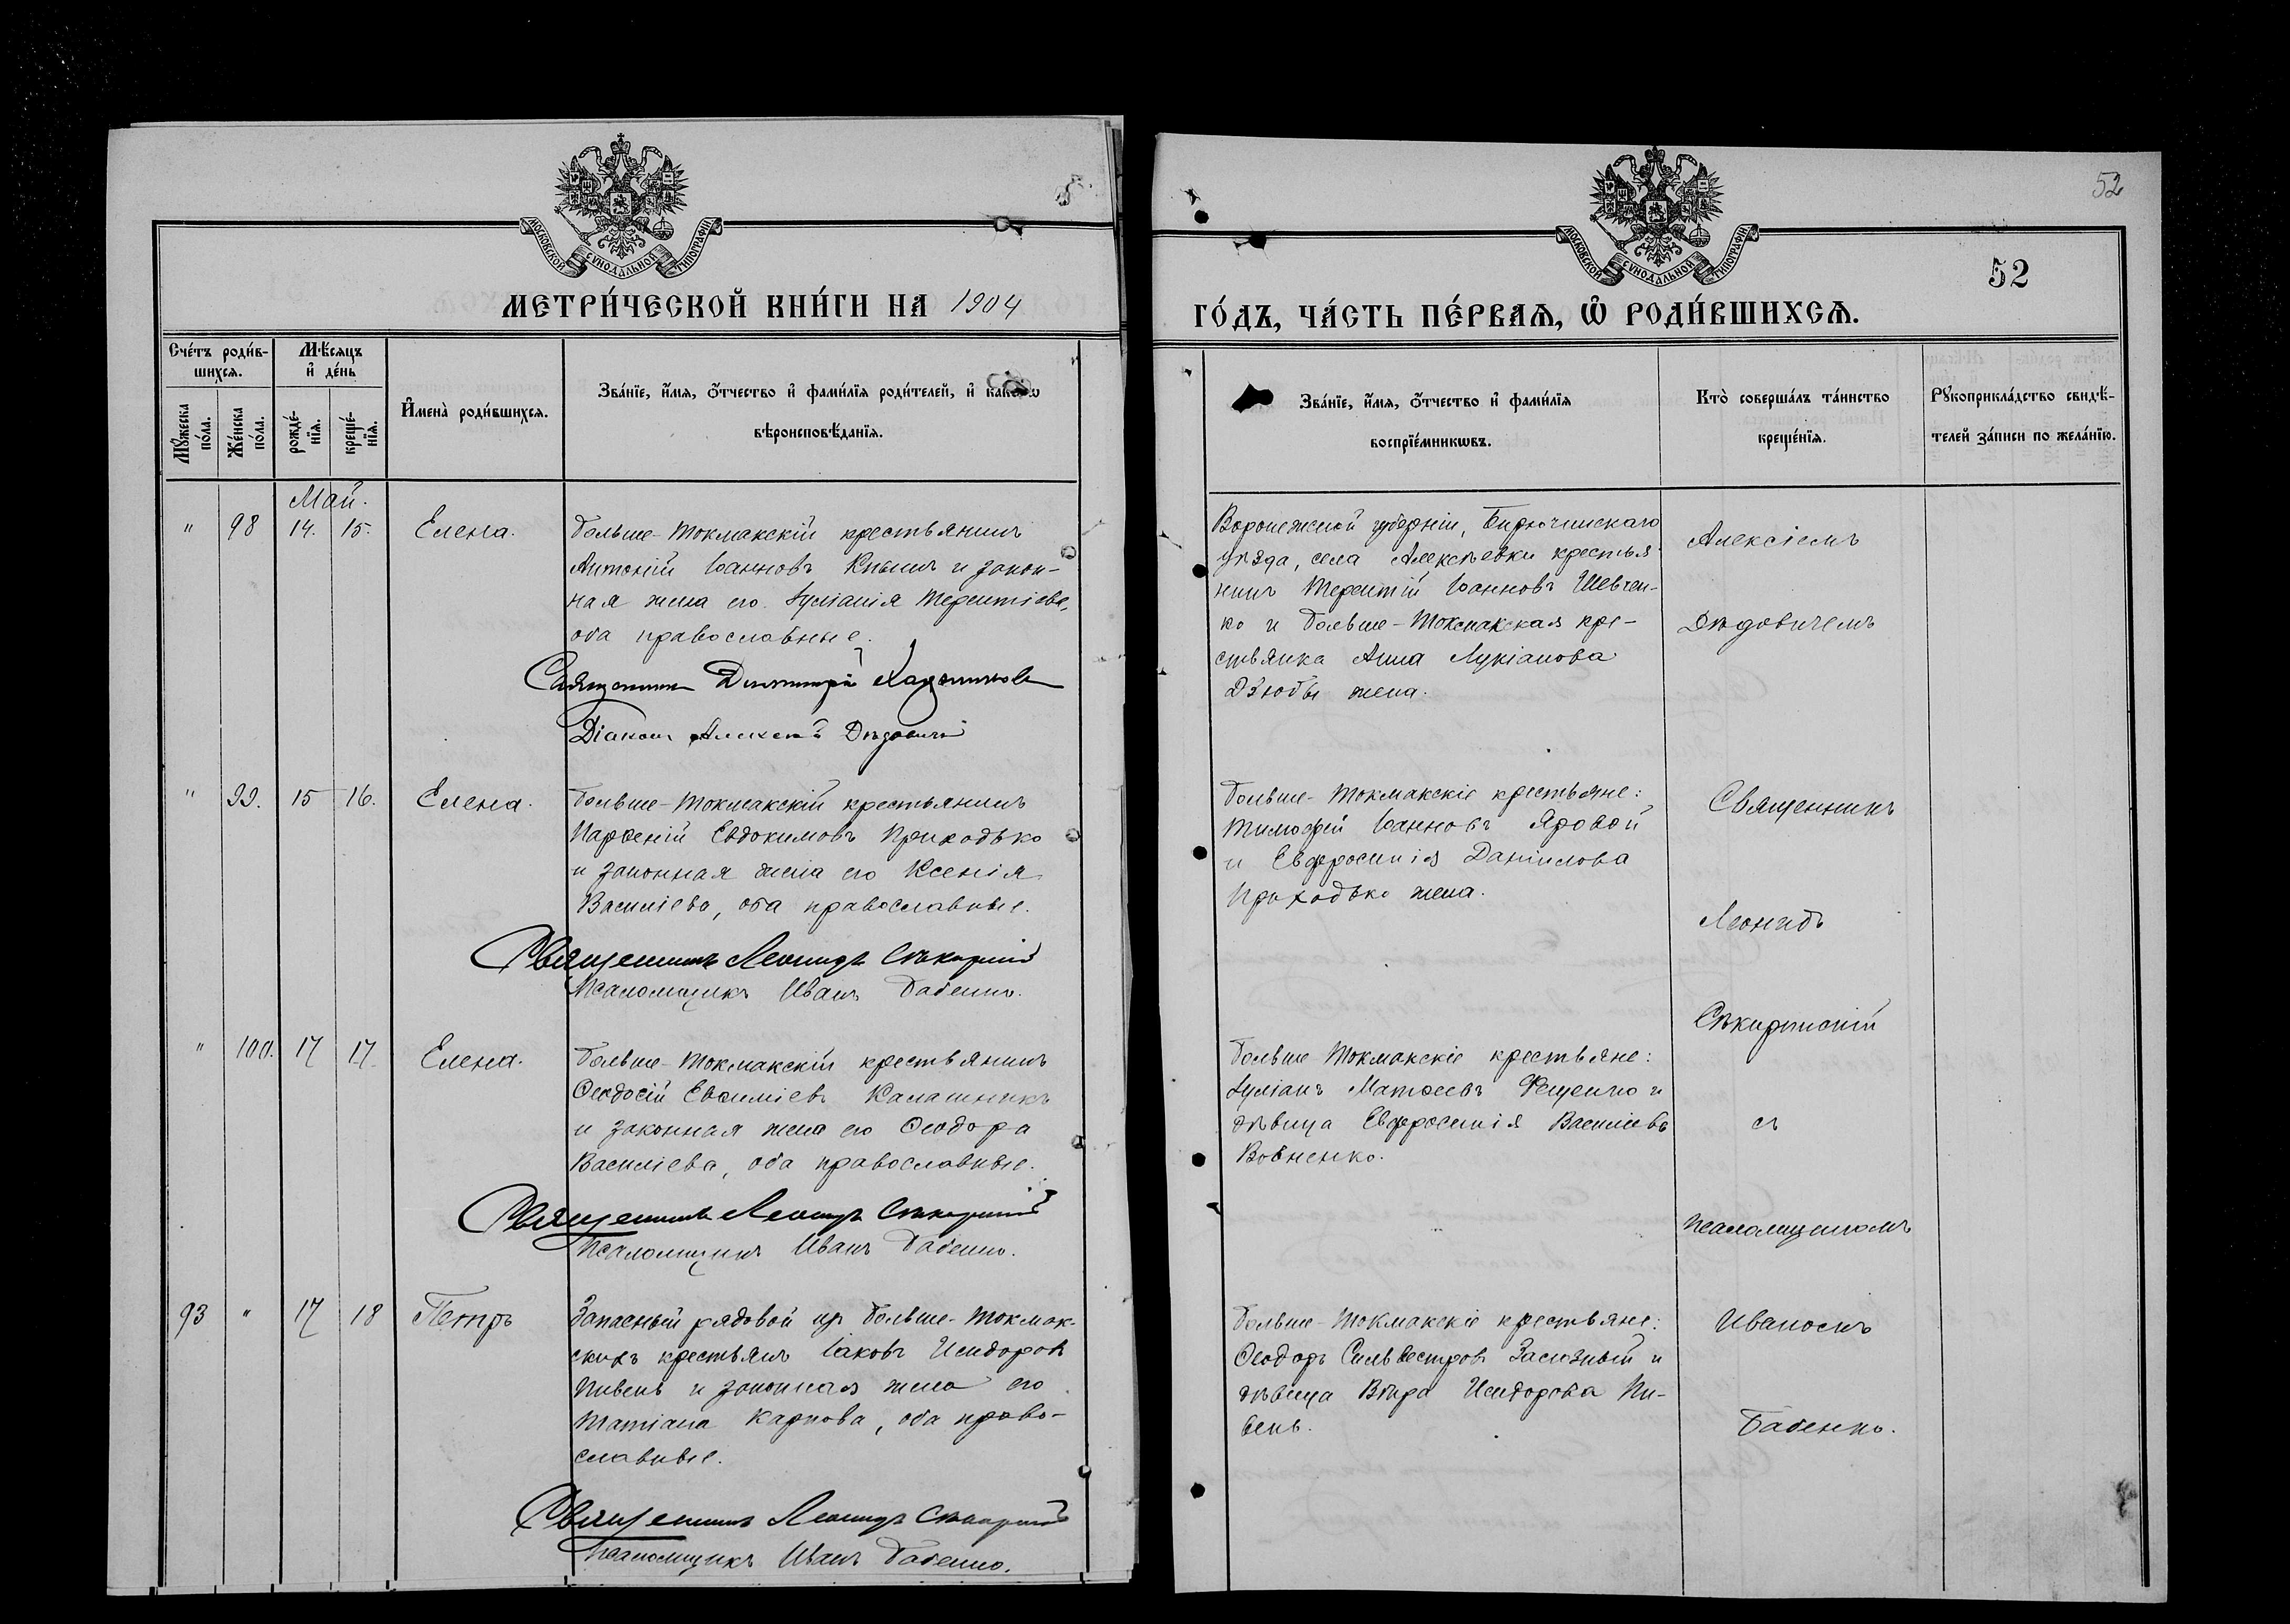 МОСКОВСКОЙ СѴНОДАЛЬНОЙ ТИПОГРАФІИ
МЕТРИ́ЧЕСКОЙ КНИ́ГИ НА 1904
Сче́тъ роди́в-
шихсѧ.
Мꙋ́жеска по́ла.
Же́нска по́ла.
Мѣ́сѧцъ
и҆ де́нь
рожде́-
нїѧ.
креще́-
нїѧ.
И҆мена̀ роди́вшихсѧ.
Зва́нїе, и҆́мѧ, ѻ҆́тчество и҆ фами́лїѧ роди́телей, и҆ како́гѡ
вѣроисповѣ́данїѧ.
Май.
" 98 14. 15. Елена.
Больше-Токмакскій крестьянинъ
Антоній Іоанновъ Кпышъ и закон-
ная жена его Іуліанія Терентіева,
оба православные.
Священникъ Димитрій
Діаконъ Алексій Дѣдовичъ
" 99. 15 16. Елена.
Больше-Токмакскій крестьянинъ
Парѳеній Евдокимовъ Приходько
и законная жена его Ксенія
Василіева, оба православные.
Священникъ Леонидъ Сѣкирскій
Псаломщикъ Иванъ Бабенко.
" 100. 17 17 Елена.
Больше-Токмакскій крестьянинъ
Ѳеодосій Евѳиміевъ Калашникъ
и законная жена его Ѳеодора
Василіева, оба православные.
Священникъ Леонидъ Сѣкирскій
Псаломщикъ Иванъ Бабенко.
93 " 17 18 Петръ
Запасный рядовой изъ Больше-Токмак-
скихъ крестьянъ Іаковъ Исидоровъ
Пивень и законная жена его
Татіана Карпова, оба право-
славные.
Священникъ Леонидъ Сѣкирскій
Псаломщикъ Иванъ Бабенко.
52
МОСКОВСКОЙ СѴНОДАЛЬНОЙ ТИПОГРАФІИ
52
ГО́ДЪ, ЧА́СТЬ ПЕ́РВАѦ, Ѡ҆ РОДИ́ВШИХСѦ.
Зва́нїе, и҆́мѧ, ѻ҆́тчество и҆ фами́лїѧ
воспрїе́мникѡвъ.
Кто̀ соверша́лъ та́инство
креще́нїѧ.
Рꙋкоприкла́дство свидѣ́-
телей за́писи по жела́нїю.
Воронежской губерніи, Бирюченскаго
уѣзда, села Алексѣевки крестья-
нинъ Терентій Іоанновъ Шевчен-
ко и Больше-Токмакская кре-
стьянка Анна Лукіанова
Дзюбы жена.
Алексіемъ
Дѣдовичемъ
Больше-Токмакскіе крестьяне:
Тимофей Іоанновъ Яровой
и Евфросинія Даніилова
Приходько жена.
Священникъ
Леонидъ
Сѣкирскій
Больше Токмакскіе крестьяне:
Іуліанъ Матѳеевъ Фещенко и
дѣвица Евфросинія Василіева
Вовненко.
съ
псаломщикомъ
Больше-Токмакскіе крестьяне:
Ѳеодоръ Сильвестровъ Засизный и
дѣвица Вѣра Исидорова Пи-
вень.
Иваномъ
Бабенко.